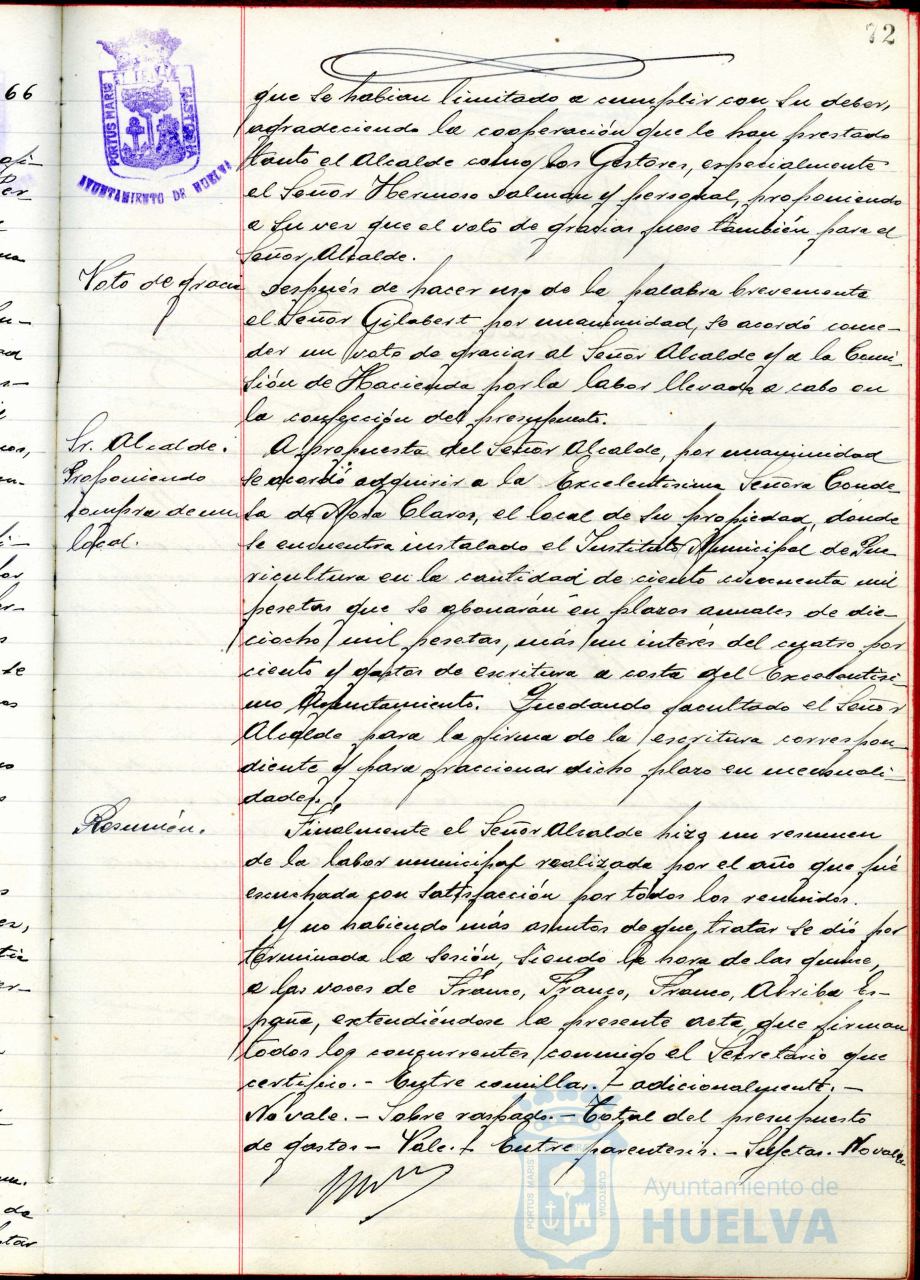 72
66
PORTUS MARIS CUSTODIA
AYUNTAMIENTO DE HUELVA
que se habian limitado a cumplir con su deber,
agradeciendo la cooperación que le han prestado
tanto el Alcalde como los Gestores, especialmente
el Señor Hermoso Dalman y personal, proponiendo
a su vez que el voto de gracias fuese también para el
Señor Alcalde.
Voto de gracia
Después de hacer uso de la palabra brevemente
el Señor Gilabert por unanimidad, se acordó conce-
der un voto de gracias al Señor Alcalde y a la Comi-
sión de Hacienda por la labor llevada a cabo en
la confección del presupuesto.
Sr. Alcalde.
Proponiendo
compra de un
local.
A propuesta del Señor Alcalde, por unanimidad
se acordó adquirir a la Excelentisima Señora Conde-
sa de Mora Claros, el local de su propiedad, donde
se encuentra instalado el Instituto Municipal de Pue-
ricultura en la cantidad de ciento cincuenta mil
pesetas que se abonarán en plazos anuales de die-
ciocho mil pesetas, más un interés del cuatro por
ciento y gastos de escritura a costa del Excelentisi-
mo Ayuntamiento. Quedando facultado el Señor
Alcalde para la firma de la escritura correspon-
diente y para fraccionar dicho plazo en mensuali-
dades.
Resumén.
Finalmente el Señor Alcalde hizo un resumen
de la labor municipal realizada por el año que fué
escuchada con satisfacción por todos los reunidos.
Y no habiendo más asuntos de que tratar se dió por
terminada la sesión, siendo la hora de las quince,
a las voces de Franco, Franco, Franco, Arriba Es-
paña, extendiéndose la presente acta, que firman
todos los concurrentes conmigo el Secretário que
certifico. - Entre comillas. - adicionalmente. -
No vale. - Sobre raspado. - Total del presupuesto
de gastos - Vale. - Entre parentesis. - Sujetas. - No vale.
PORTUS MARIS CUSTODIA
Ayuntamiento de
HUELVA